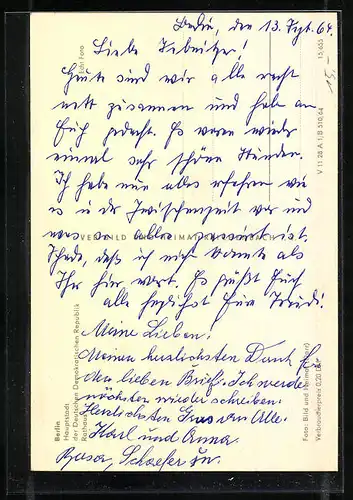 Berlin, den 13. Sept. 64.
Liebe !
Heute sind wir alle recht
nett zusammen und haben an
Euch gedacht. Es waren wieder
einmal sehr schöne Stunden.
Ich habe nun alles erfahren wie
es in der Zwischenzeit war und
was so alles passiert ist.
Schade, daß ich nicht konnte als
Ihr hier wart. Es grüßt Euch
alle herzlichst Eure Trudi!
Meine Lieben!
Meinen herzlichsten Dank für
den lieben Brief. Ich werde
nächstens wieder schreiben.
Herzlichsten Gruss an Alle.
Karl und Anna.
Schaefer
Echt Foto
VERLAG BILD UND HEIMAT REICHENBACH
Berlin
Hauptstadt
der Deutschen Demokratischen Republik
Rathaus
15,653
15,-
V 11 28 A 1/B 510/64
Foto: Bild und Heimat
Verbraucherpreis 0,20 DM